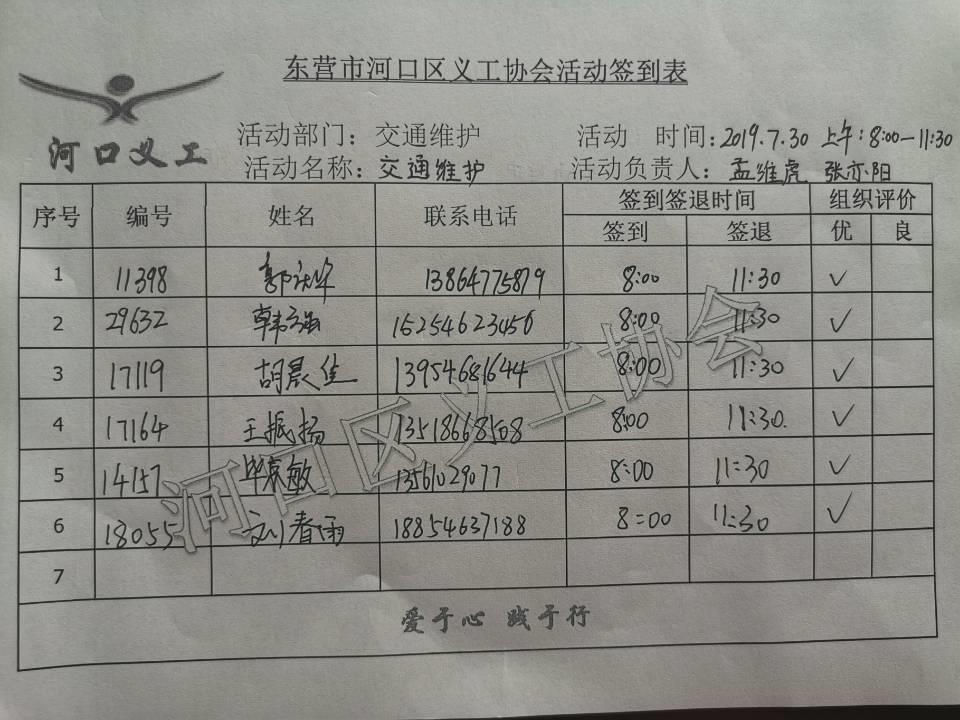 东营市河口区义工协会活动签到表
河口义工
活动部门：交通维护 活动 时间：2019.7.30 上午：8:00—11:30
活动名称：交通维护 活动负责人：孟维虎 张亦阳
序号 编号 姓名 联系电话 签到签退时间 组织评价
签到 签退 优 良
1 11398 13864775879 8:00 11:30 ✓
2 29632 15254623456 8:00 11:30 ✓
3 17119 胡晨佳 13954681644 8:00 11:30 ✓
4 17164 王振扬 13518668508 8:00 11:30. ✓
5 14157 13561029077 8:00 11:30 ✓
6 18055 刘春雨 18854637188 8:00 11:30 ✓
7
爱于心 践于行
河口区义工协会